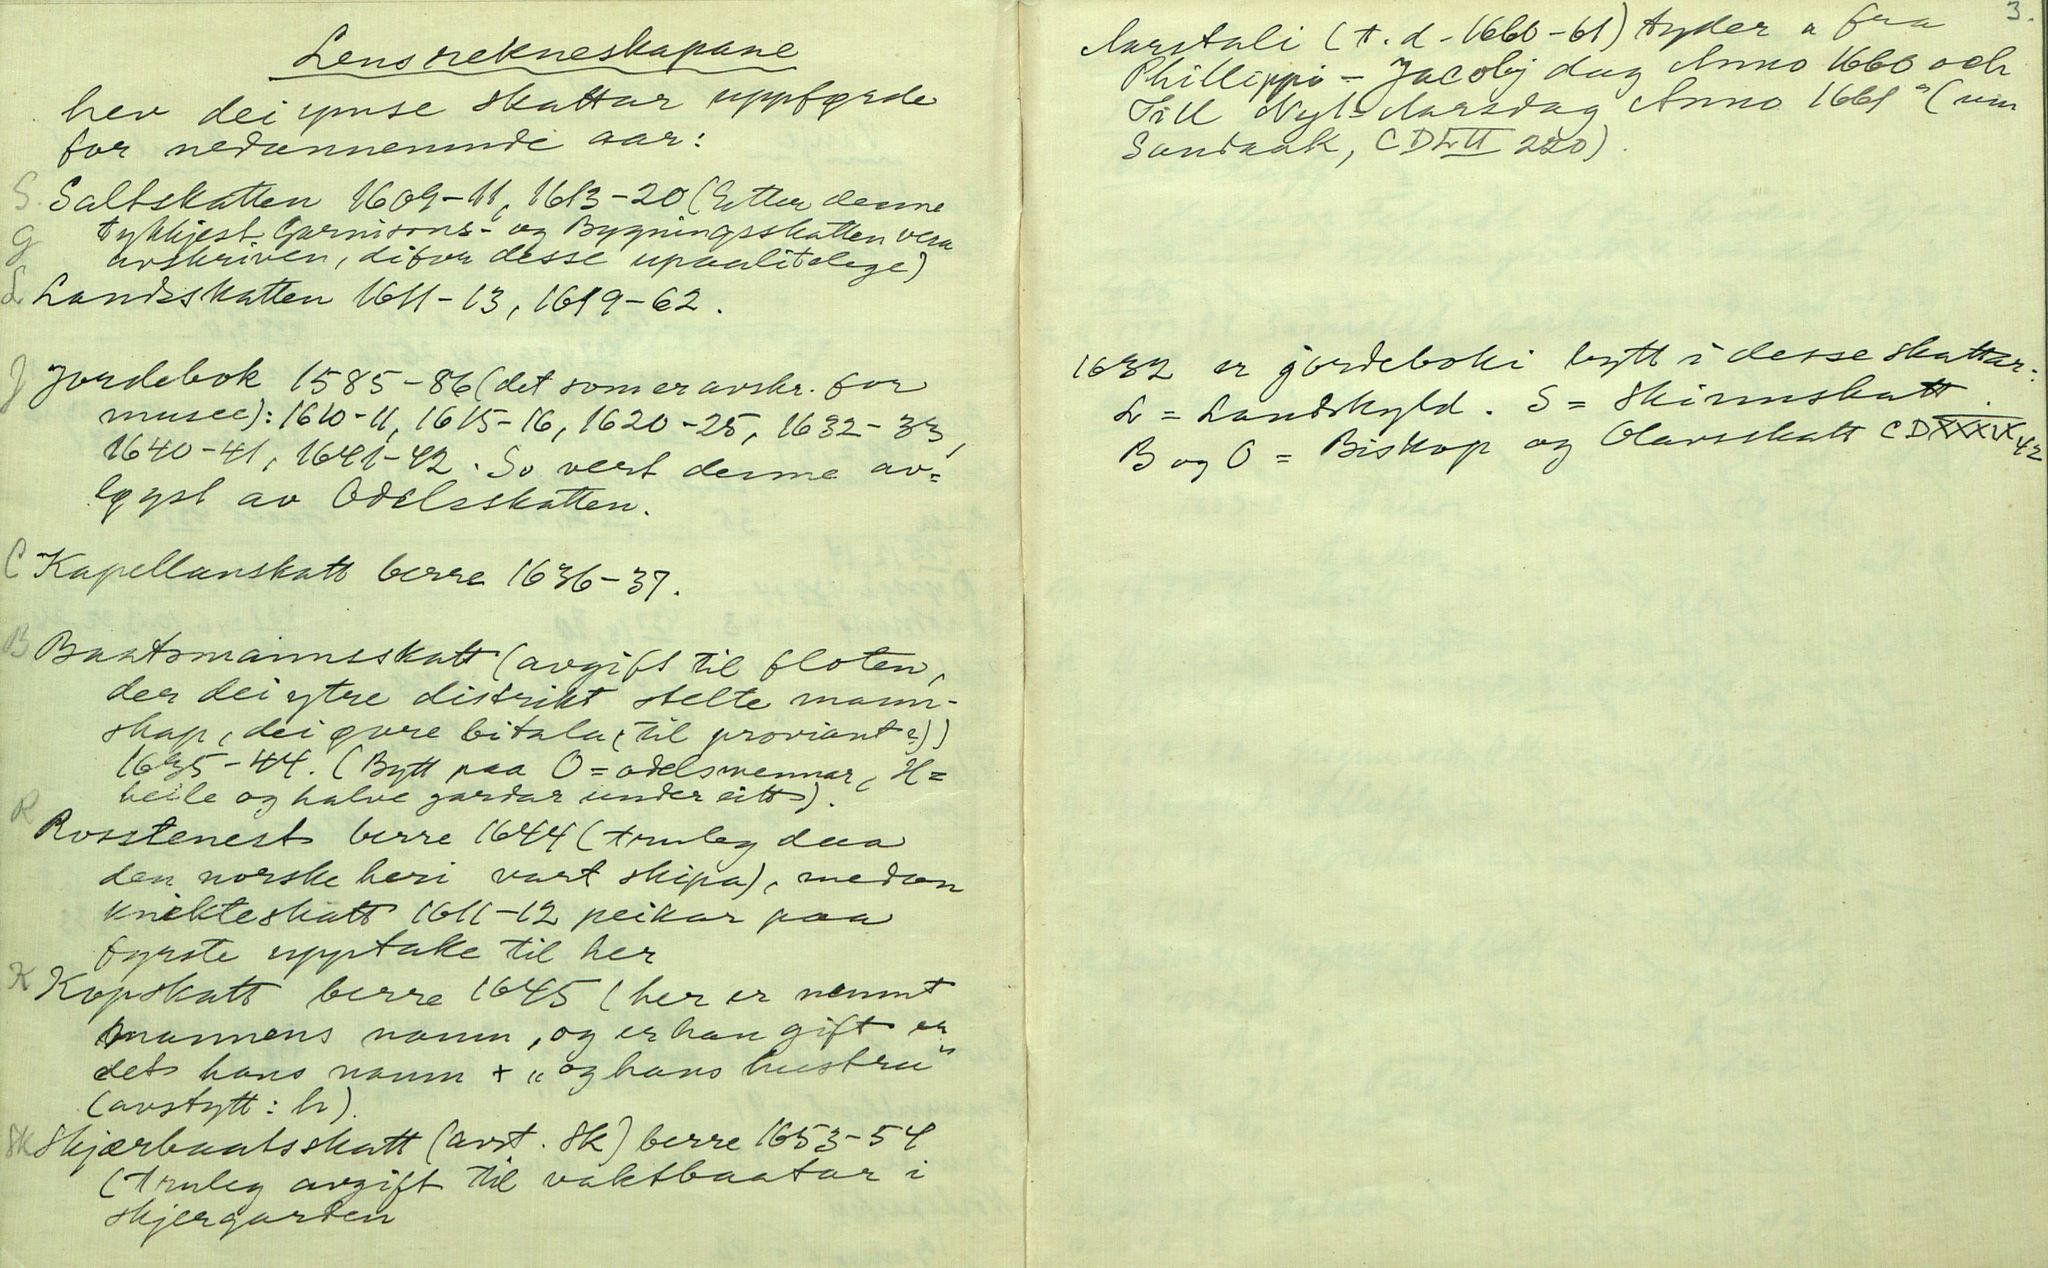 Lensrekneskapane
hev dei ymse skattar uppførde
for nedannemnde aar:
S Saltskatten 1609-11, 1613-20 (Etter denne
G tykkjest Garnisons- og Bygningsskatten vera
avskriven, difor desse upaalitelege)
L Landsskatten 1611-13, 1619-62.
J Jordebok 1585-86 (det som er avskr. for
museé): 1610-11, 1615-16, 1620-25, 1632-33,
1640-41, 1641-42. So vert denne av=
løyst av Odelsskatten.
C Kapellanskatt berre 1636-37.
B Baatsmannsskatt (avgift til floten,
der dei ytre distrikt stelte mann-
skap, dei øvre bitala (til proviant?))
1635-44. (Bytt paa O = odelsmennar, H =
heile og halve gardar under eitt).
R Rosstenest berre 1644 (truleg daa
den norske heri vart skipa), medan
knikteskatt 1611-12 peikar paa
fyrste upptake til her
K Kopskatt berre 1645 (her er nemnt
mannens namn, og er han gift er
det hans namn + „og hans hustru"
(avstytt: h).
Sk Skjærbaatsskatt (avst. Sk) berre 1653-54
(truleg avgift til vaktbaatar i
skjergarden
3.
Aarstali (t. d. 1660-61) tyder „fra
Phillippi - Jacobj dag Anno 1660 och
Till Nyt-Aarsdag Anno 1661" (um
Sandaak, CDLII 220).
1632 er jordeboki bytt i desse skattar:
L = Landskyld. S = Skinnskatt.
B og O = Biskop og Olavsskatt CDXXXIX 42